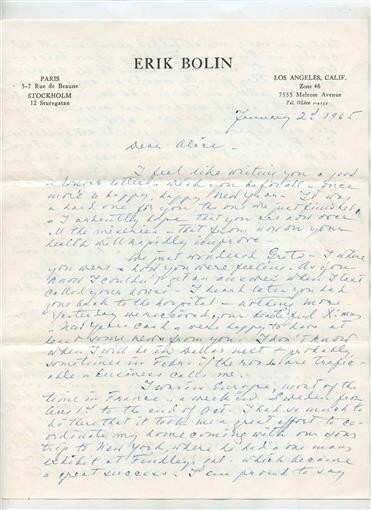 ERIK BOLIN
PARIS
5-7 Rue de Beaune
STOCKHOLM
12 Sturegatan
LOS ANGELES, CALIF.
Zone 46
7555 Melrose Avenue
January 2d 1965
Dear Alice -
I feel like writing you a good
longer letter - wish you before all - once
more a happy, happy New Year - It was
a hard one for you the one we just finished
I ardently hope that you are now over
all the miseries - that from now on your
health will rapidly improve
We just wondered Greta - I where
you were - how you were feeling. As you
know I couldn't get an answer when I had
called your house - I heard later you had
gone back to the hospital - nothing more
Yesterday we received your beautiful Xmas
New Years card & were happy to have at
least some news from you. I don't know
when I will be in Dallas next - probably
sometimes in Febr. if the roads are traffic-
able or business calls me.
I was in Europe, most of the
time in France - a week in Sweden from
to the end of Oct. I had so much to
bother that it took me a great effort to co-
ordinate my home coming with our sons
trip to New York, where he had a one man
exhibit at Findlay gal. which became
a great success. I am proud to say